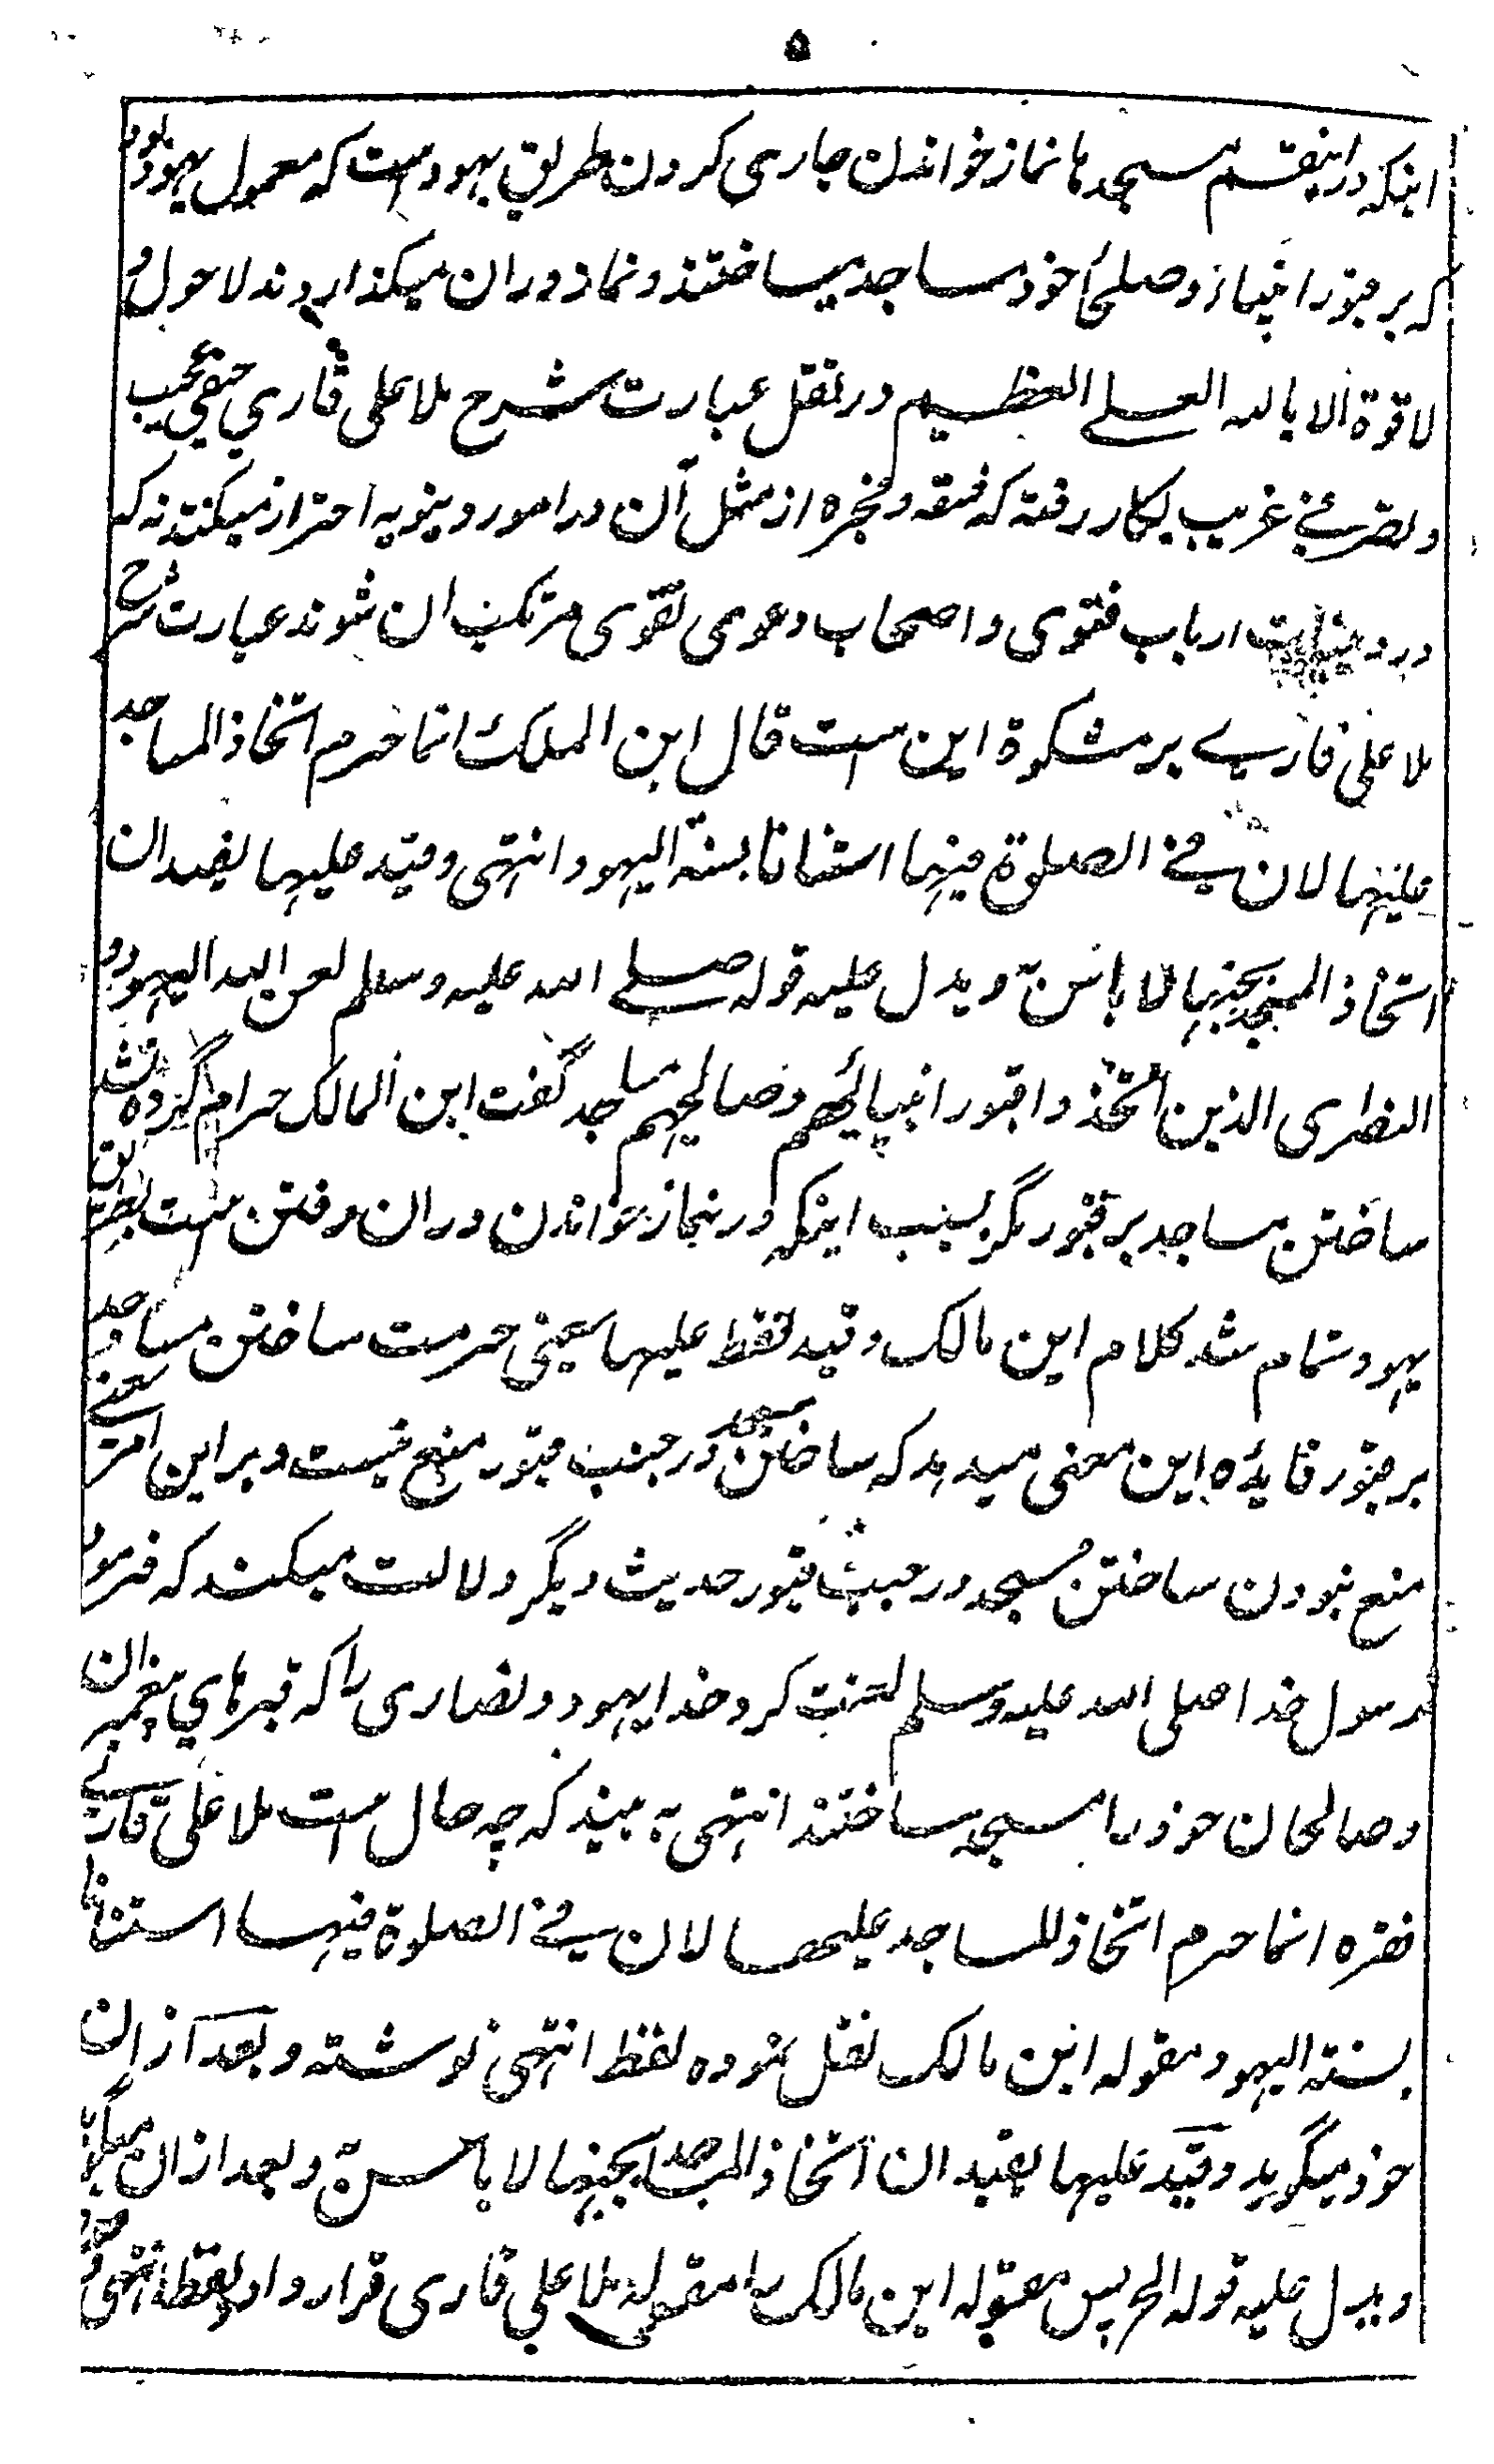 ۵
اینکه درینقسم مسجدها نماز خواندن جاری کردن طریق یهود است که معمول یهود بود
که بر قبور انبیا و صلحائی خود مساجد میساختند و نماز دران میگذاردند لا حول و
لا قوة الا بالله العلے العظیم در نقل عبارت شرح ملا علی قاری حنفی عجیب
و تصرفے غریب بکار رفته که فسقه و فجره از مثل آن در امور دینویه احتراز میکنند نه که
در دینیات ارباب فتوی و اصحاب دعوی تقوی مرتکب ان شوند عبارت شرح
ملا علی قارے بر مشکوة این ست قال ابن الملک انما حرم اتخاذ المساجد
علیها لان فے الصلوة فیها استنانا بسنة الیهود انتهی و قید علیها یفید ان
اتخاذ المسجد بجنبها لا باس به و یدل علیه قوله صلے الله علیه وسلم لعن الله الیهود و
النصاری الذین اتخذوا قبور انبیائهم و صالحیهم مساجد گفت ابن المالک حرام کرده نشد
ساختن مساجد بر قبور مگر بسبب اینکه در نماز خواندن دران رفتن ست بطریق
یهود تمام شد کلام ابن مالک و قید لفظ علیها یعنی حرمت ساختن مساجد
بر قبور فایده این معنی میدهد که ساختن مسجد در جنب قبور منع نیست و بر این امر یعنے
منع نبودن ساختن مسجد در جنب قبور حدیث دیگر دلالت میکند که فرمود
رسول خدا صلی الله علیه وسلم لعنت کرد خدا یهود و نصاری را که قبرهای پیغمبران
و صالحان خود را مسجد ساختند انتهی به بیند که چه حال ست ملا علی قارے
فقره انما حرم اتخاذ المساجد علیها لان فے الصلوة فیها استنانا
بسنة الیهود مقوله ابن مالک نقل نموده لفظ انتهی نوشته و بعد ازان
خود میگوید و قید علیها یفید ان اتخاذ المساجد بجنبها لا باس به و بعد ازان میگوید
و یدل علیه قوله الخ پس مقوله ابن مالک را مقوله ملا علی قاری قرار داد و لفظ انتهی